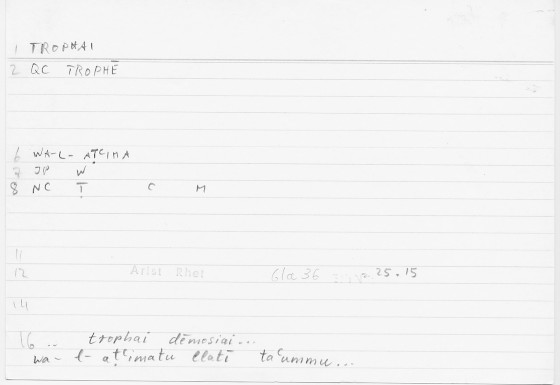 1 TROPHAI
2 QC TROPHĒ
6 WA-L- AṬᶜIMA
7 JP W
8 NC Ṭ C M
11
12 Arist Rhet 61a36 25.15
14
16 .. trophai dēmosiai...
wa-l-aṭᶜimatu llatī taᶜummu...